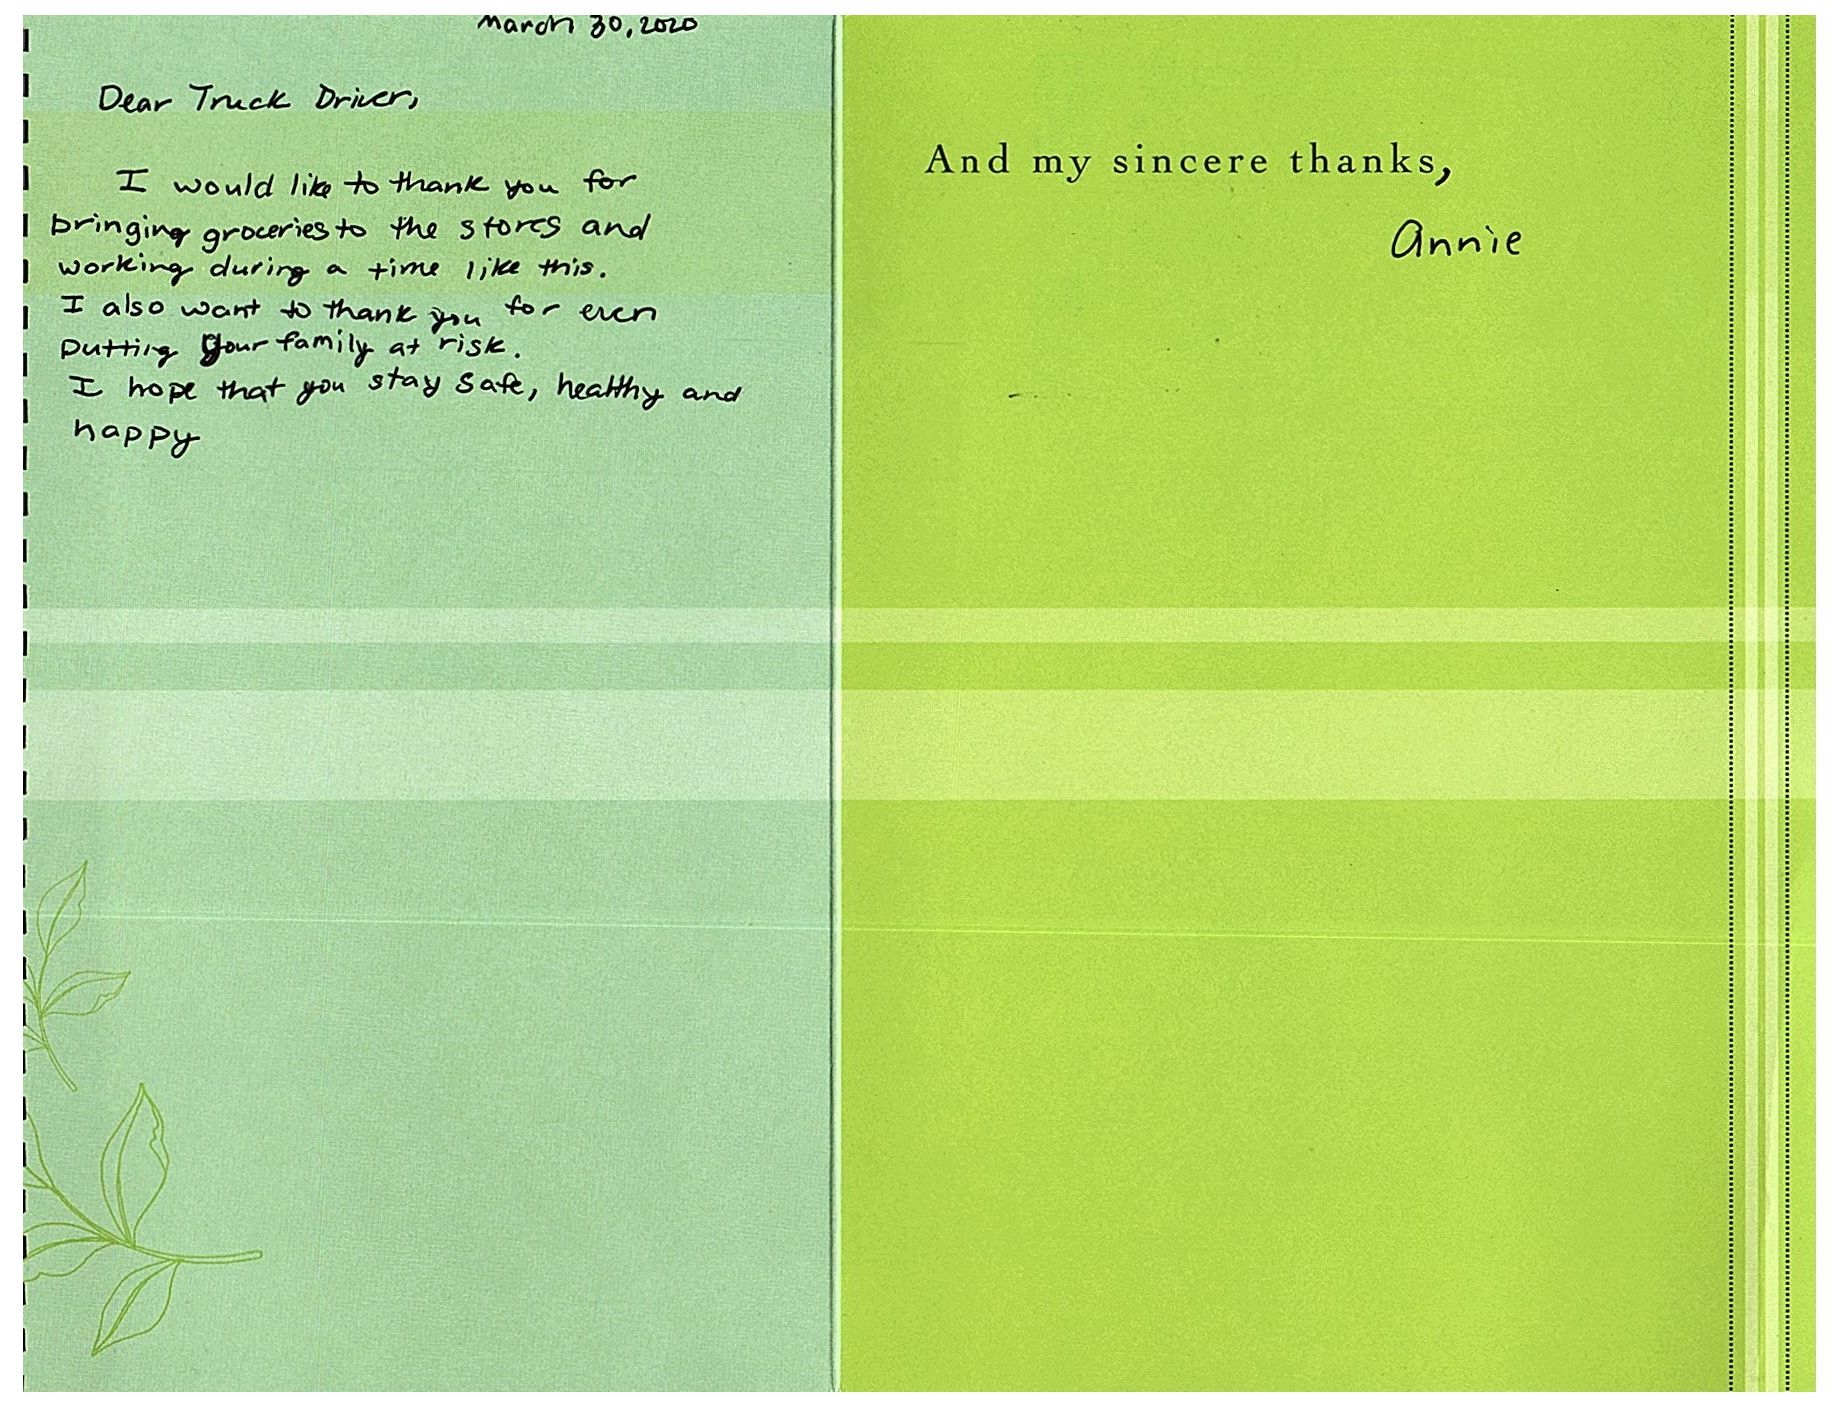 March 30, 2020
Dear Truck Driver,
I would like to thank you for
bringing groceries to the stores and
working during a time like this.
I also want to thank you for even
putting your family at risk.
I hope that you stay safe, healthy and
happy
And my sincere thanks,
Annie